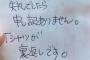 失礼でしたら
申し訳ありません。
Tシャツが
裏返しです。